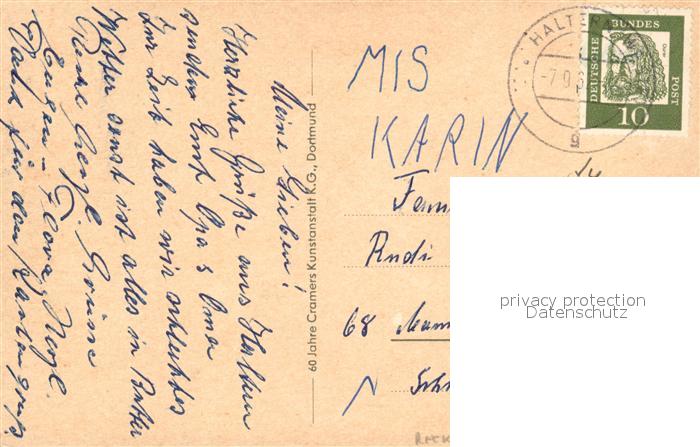 Meine Lieben!
Herzliche Grüße aus Haltern
senden Euch Opa & Oma
Zur Zeit haben wir schlechtes
Wetter sonst ist alles in Butter
Grüsse
Eugen
Dank für den Kartengruß
60 Jahre Cramers Kunstanstalt K.G., Dortmund
MIS
KARIN
Fam
Rudi
68 Mann
Sch
HALTERN
-7.9.6
g
DEUTSCHE BUNDES POST
10
privacy protection
Datenschutz